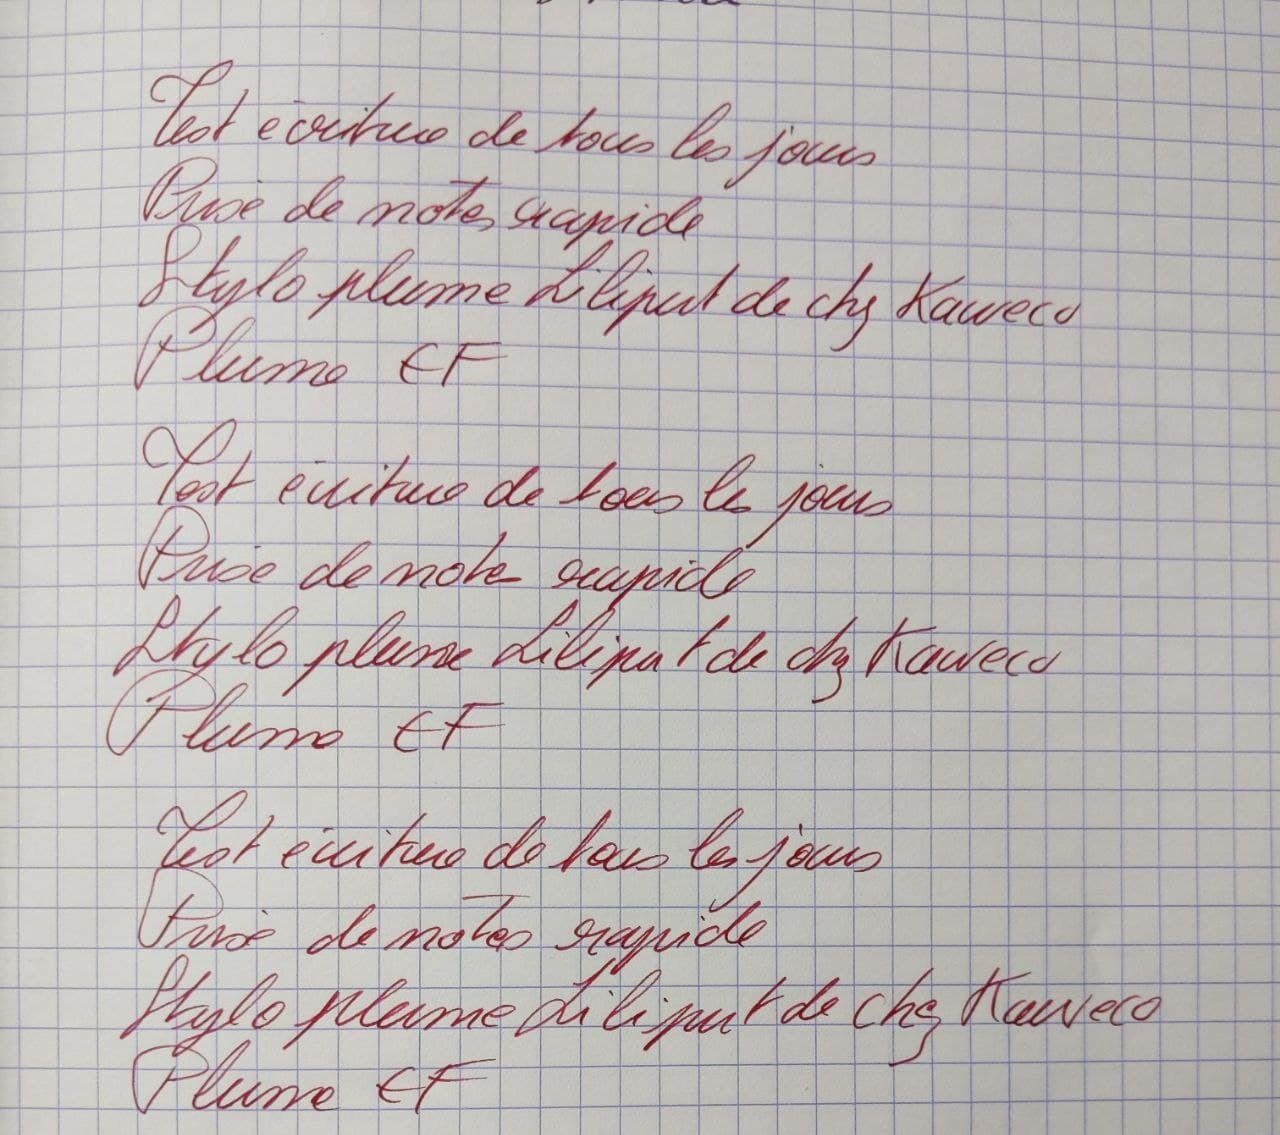 Test écriture de tous les jours
Prise de notes rapide
Stylo plume Liliput de chz Kaweco
Plume EF
Test écriture de tous les jours
Prise de note rapide
Stylo plume Liliput de chz Kaweco
Plume EF
Test écriture de tous les jours
Prise de notes rapide
Stylo plume Liliput de chez Kaweco
Plume EF